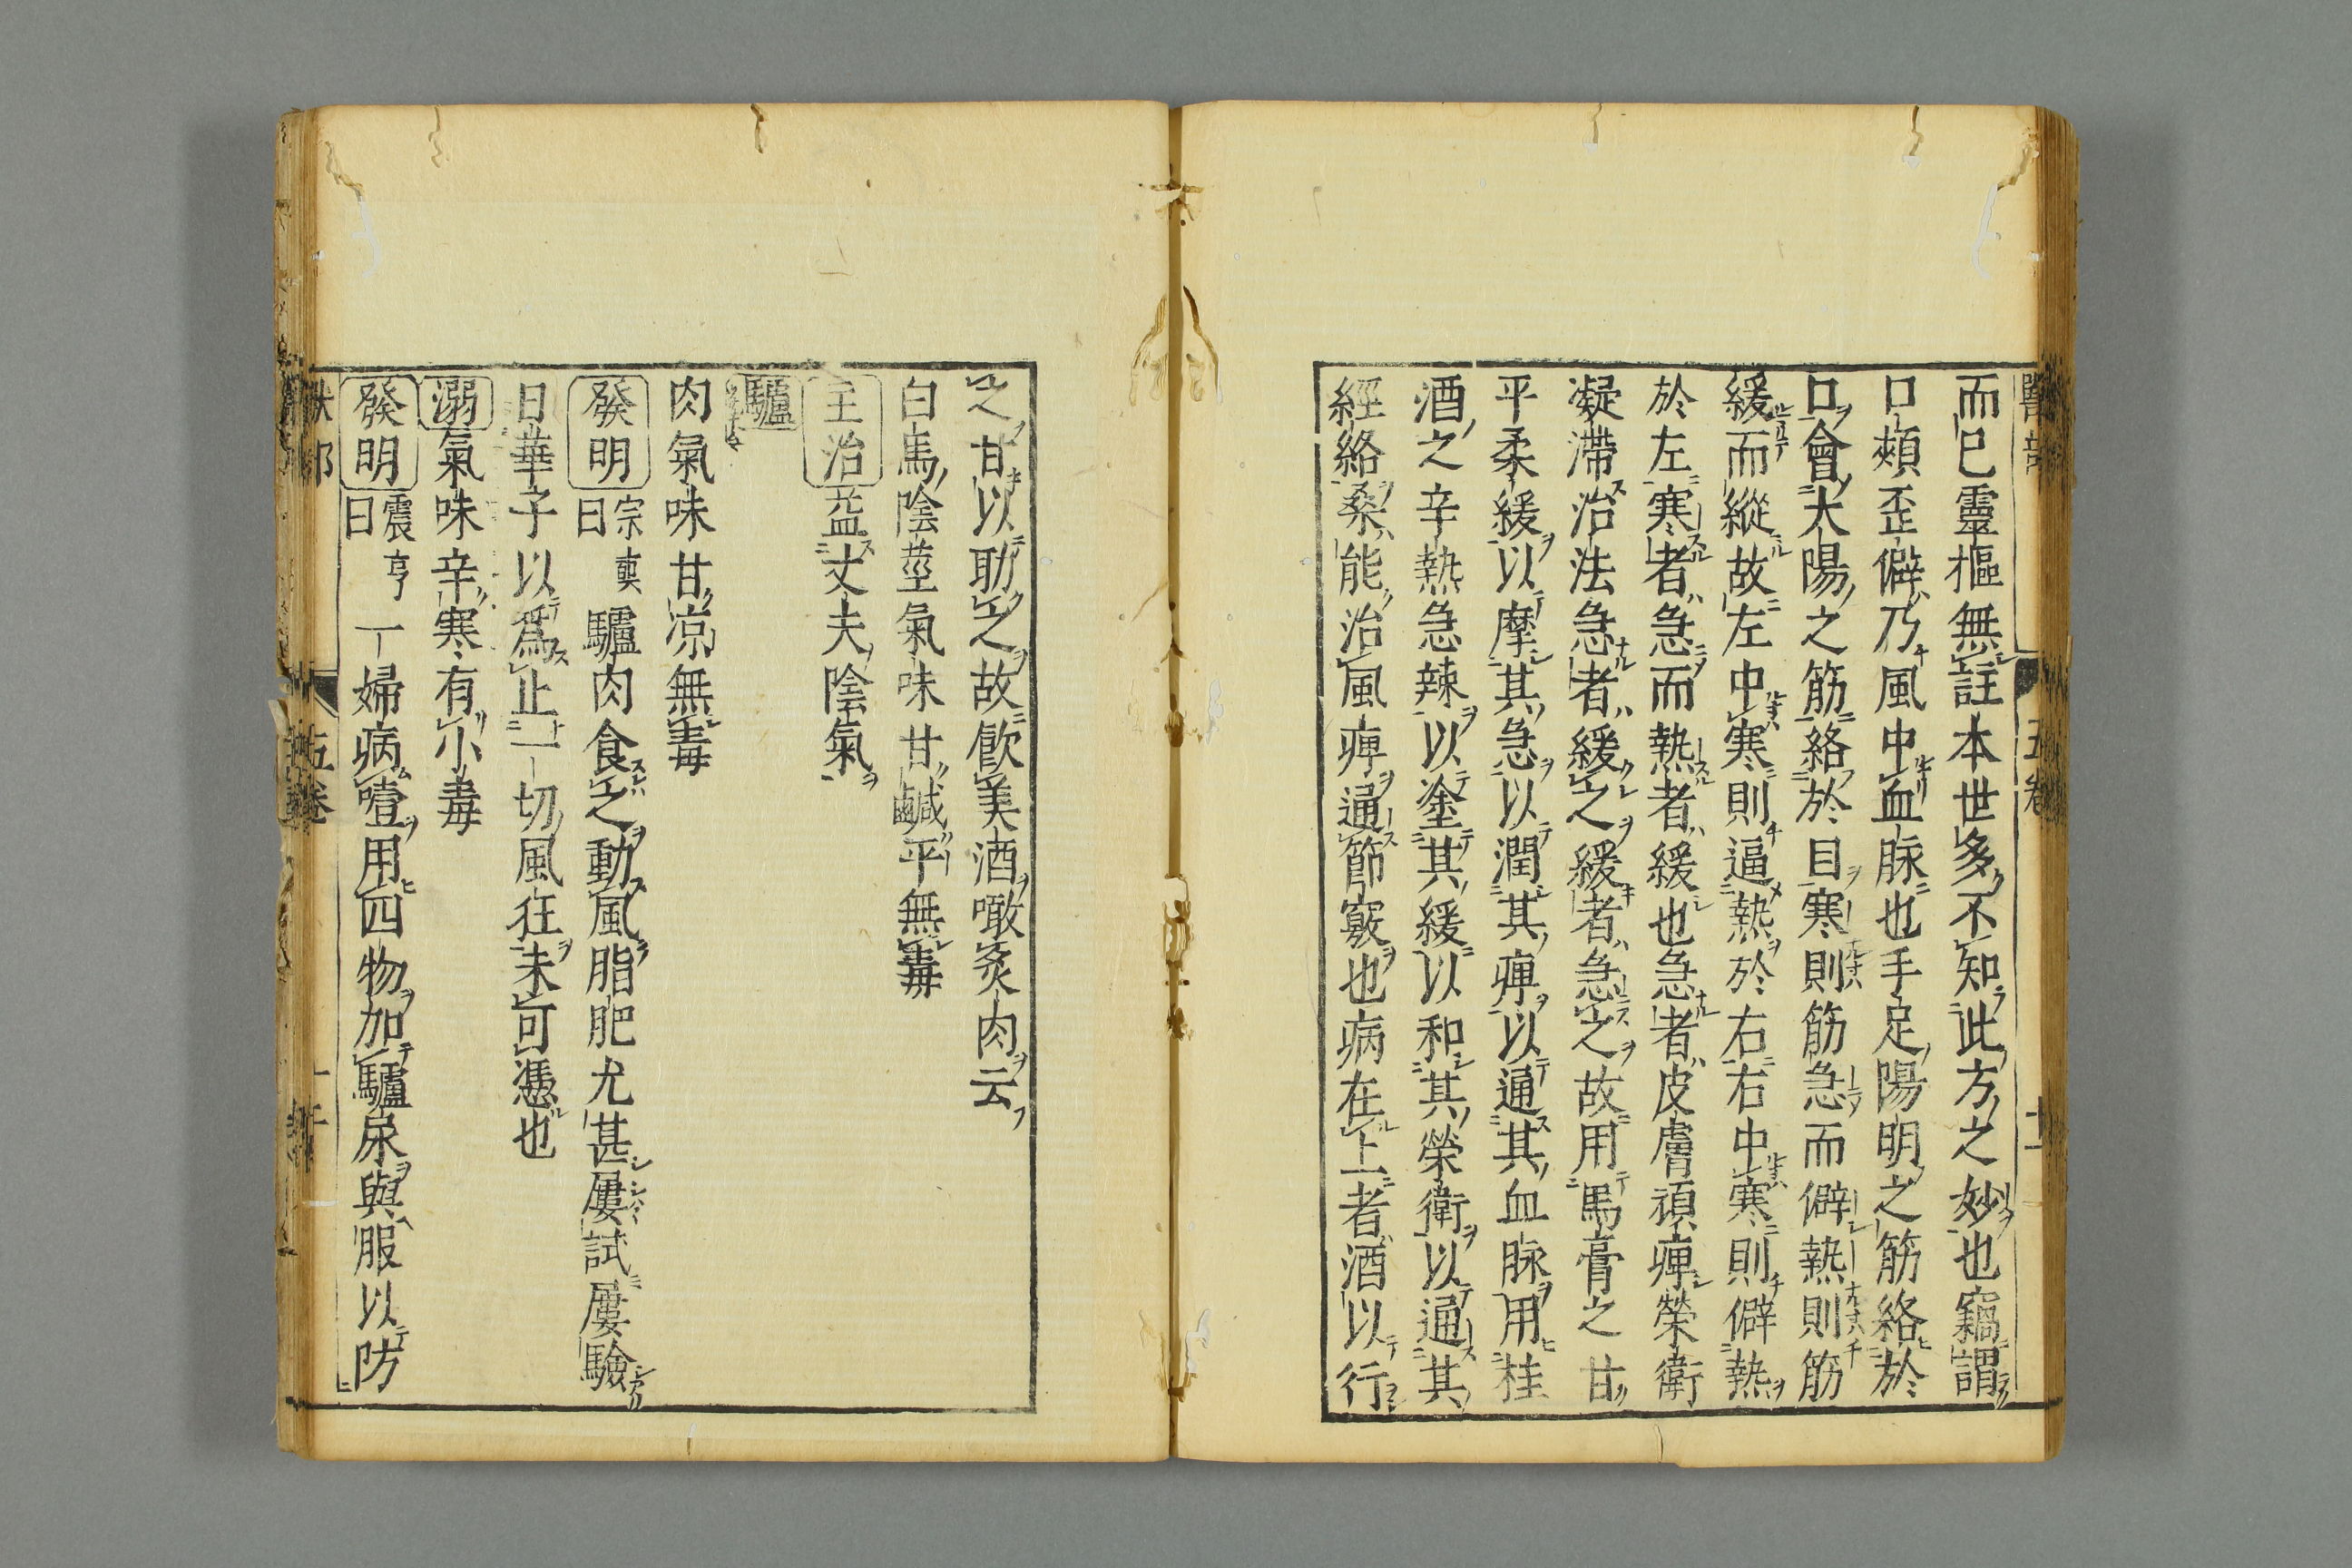 而已靈樞無註本世多不知此方之妙也竊謂
口頰歪僻乃風中血脉也手足陽明之筋絡於
口會太陽之筋絡於目寒則筋急而僻熱則筋
緩而縱故左中寒則逼熱於右右中寒則僻熱
於左寒者急而熱者緩也急者皮膚頑痺榮衛
凝滯治法急者緩之緩者急之故用馬膏之甘
平柔緩以摩其急以潤其痺以通其血脉用桂
酒之辛熱急辣以塗其緩以和其榮衛以通其
經絡桑能治風痺通節竅也病在上者酒以行
之甘以助之故飲美酒噉炙肉云
白馬陰莖氣味甘鹹平無毒
主治益丈夫陰氣
驢
肉氣味甘凉無毒
發明宗奭曰驢肉食之動風脂肥尤甚屢試屢驗
日華子以爲止一切風狂未可憑也
溺氣味辛寒有小毒
發明震亨曰一婦病噎用四物加驢尿與服以防
五卷